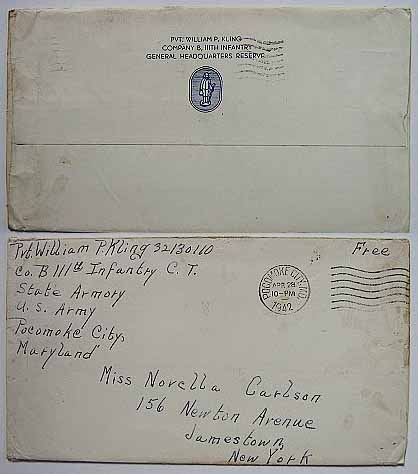 PVT. WILLIAM P. KLING
COMPANY B, 111TH INFANTRY
GENERAL HEADQUARTERS RESERVE
Pvt. William P. Kling 32130110
Co. B 111th Infantry C. T.
State Armory
U. S. Army
Pocomoke City,
Maryland
Free
POCOMOKE CITY, MD.
APR 28
10-PM
1942
Miss Norella Carlson
156 Newton Avenue
Jamestown,
New York